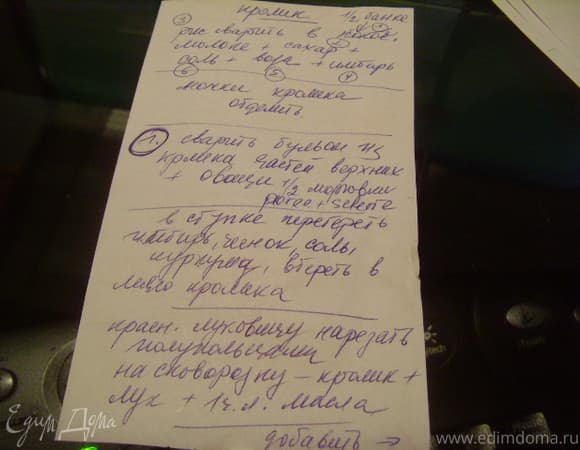 кролик 1/2 банка
③ рис сварить в кокос.
молоке + сахар +
соль + вода + имбирь
⑥ ⑤ ④
ножки кролика
отделить.
1. сварить бульон из
кролика частей верхних
+ овощи 1/2 моркови
poree + selerie
в ступке перетереть
имбирь, чеснок, соль,
куркума, втереть в
мясо кролика
красн. луковицу нарезать
полукольцами
на сковородку – кролик +
лук + 1 ч. л. масла
добавить →
Едим Дома
www.edimdoma.ru